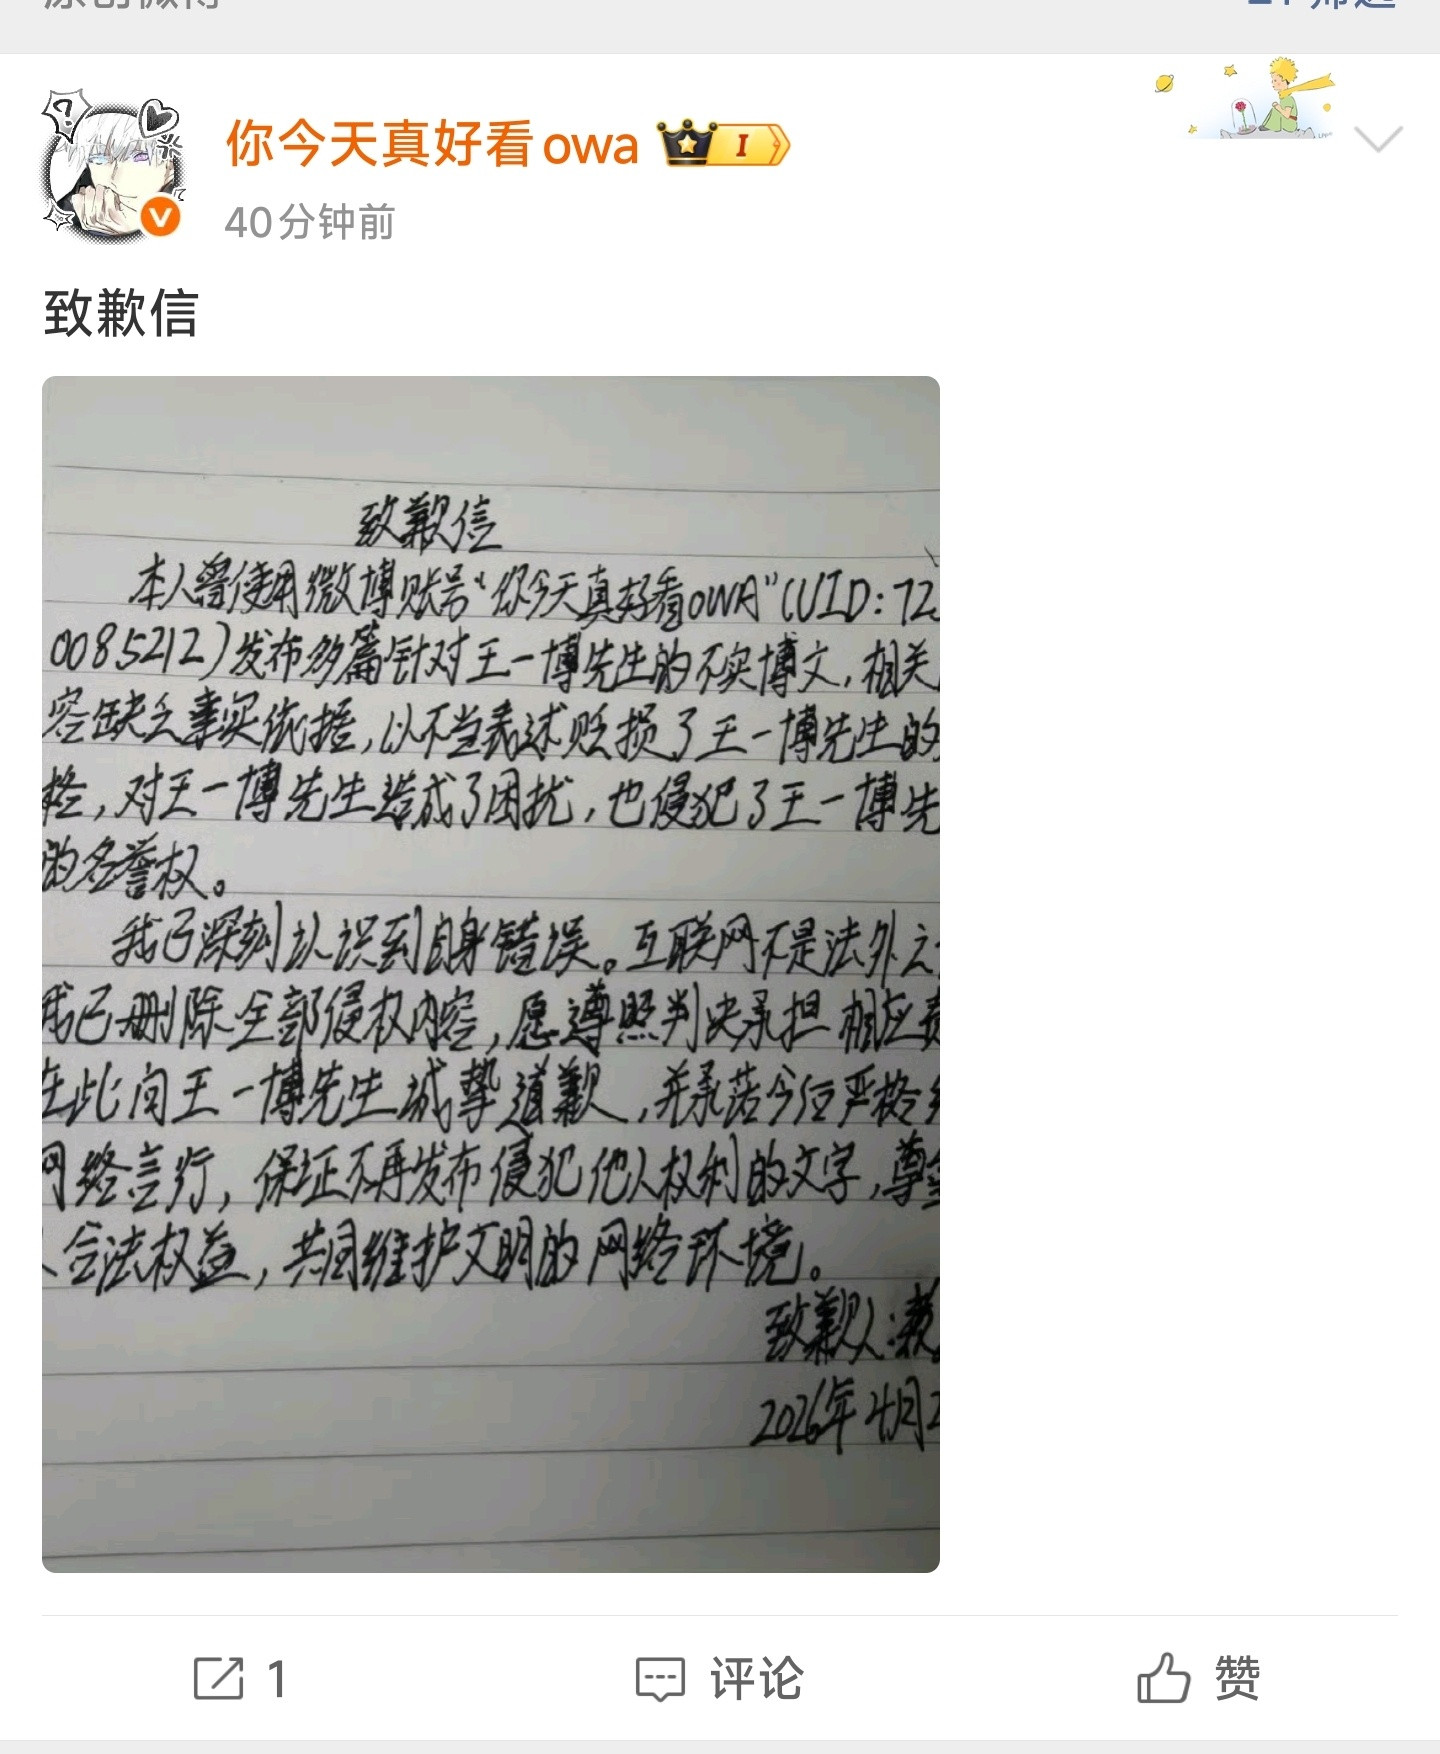 你今天真好看owa
I
40分钟前
致歉信
致歉信
本人曾使用微博账号“你今天真好看owA”(UID:72
0085212)发布多篇针对王一博先生的不实博文,相关
容缺乏事实依据,以不当表述贬损了王一博先生的
格,对王一博先生造成了困扰,也侵犯了王一博先
的名誉权。
我已深刻认识到自身错误。互联网不是法外之
我已删除全部侵权内容,愿遵照判决承担相应责
在此向王一博先生诚挚道歉,并承诺今后严格
网络言行,保证不再发布侵犯他人权利的文字,尊
人合法权益,共同维护文明的网络环境。
致歉人:
2026年4月2
1
评论
赞